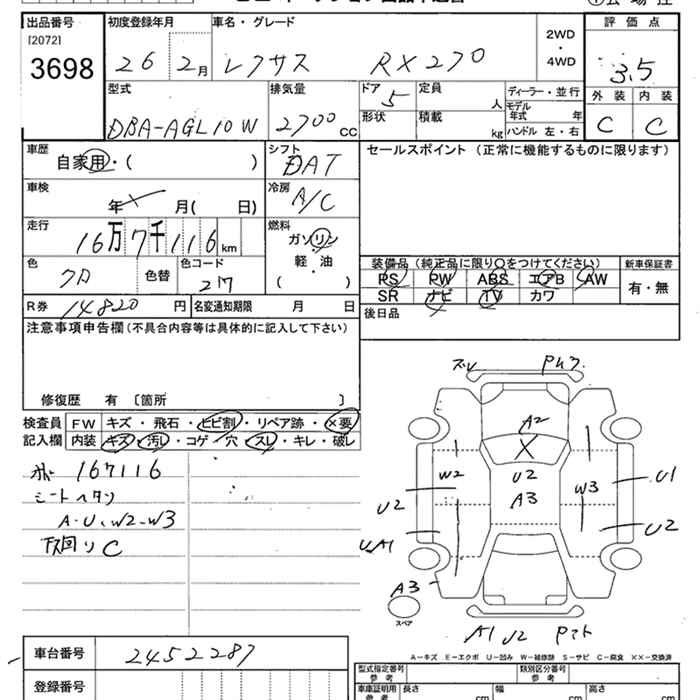 出品番号 初度登録年月 車名・グレード 評価点
[2072]
3698 26 2月 レクサス RX270 2WD・4WD 3.5
型式 排気量 ドア 定員 ディーラー・並行 外装 内装
DBA-AGL10W 2700cc 5 人 モデル年式 年 C C
形状 積載 kg ハンドル 左・右
車歴 シフト セールスポイント (正常に機能するものに限ります)
自家用・( ) DAT
車検 冷房
年 月( 日) A/C
走行 燃料
16万7千116km ガソリン
軽・油
( )
色 色替 色コード 装備品 (純正品に限り○をつけてください) 新車保証書
クロ 217 PS PW ABS エアB AW 有・無
SR ナビ TV カワ
R券 14820円 名変通知期限 月 日 後日品
注意事項申告欄(不具合内容等は具体的に記入して下さい)
修復歴 有 [箇所 ]
検査員 FW キズ・飛石・ヒビ割・リペア跡・×要
記入欄 内装 キズ・汚し・コゲ・穴・スレ・キレ・破レ
167116
シートヘタリ
A・U、W2-W3
下回りC
スレ
A2
W2 U2 W3 U1
A3
U2 U2
UA1
A3
スペア
A1 U2
A-キズ E-エクボ U-凹み W-補修跡 S-サビ C-腐食 ××-交換済
車台番号 2452287
登録番号
型式指定番号 参考 類別区分番号 参考
車庫証明用 参考 長さ cm 幅 cm 高さ cm